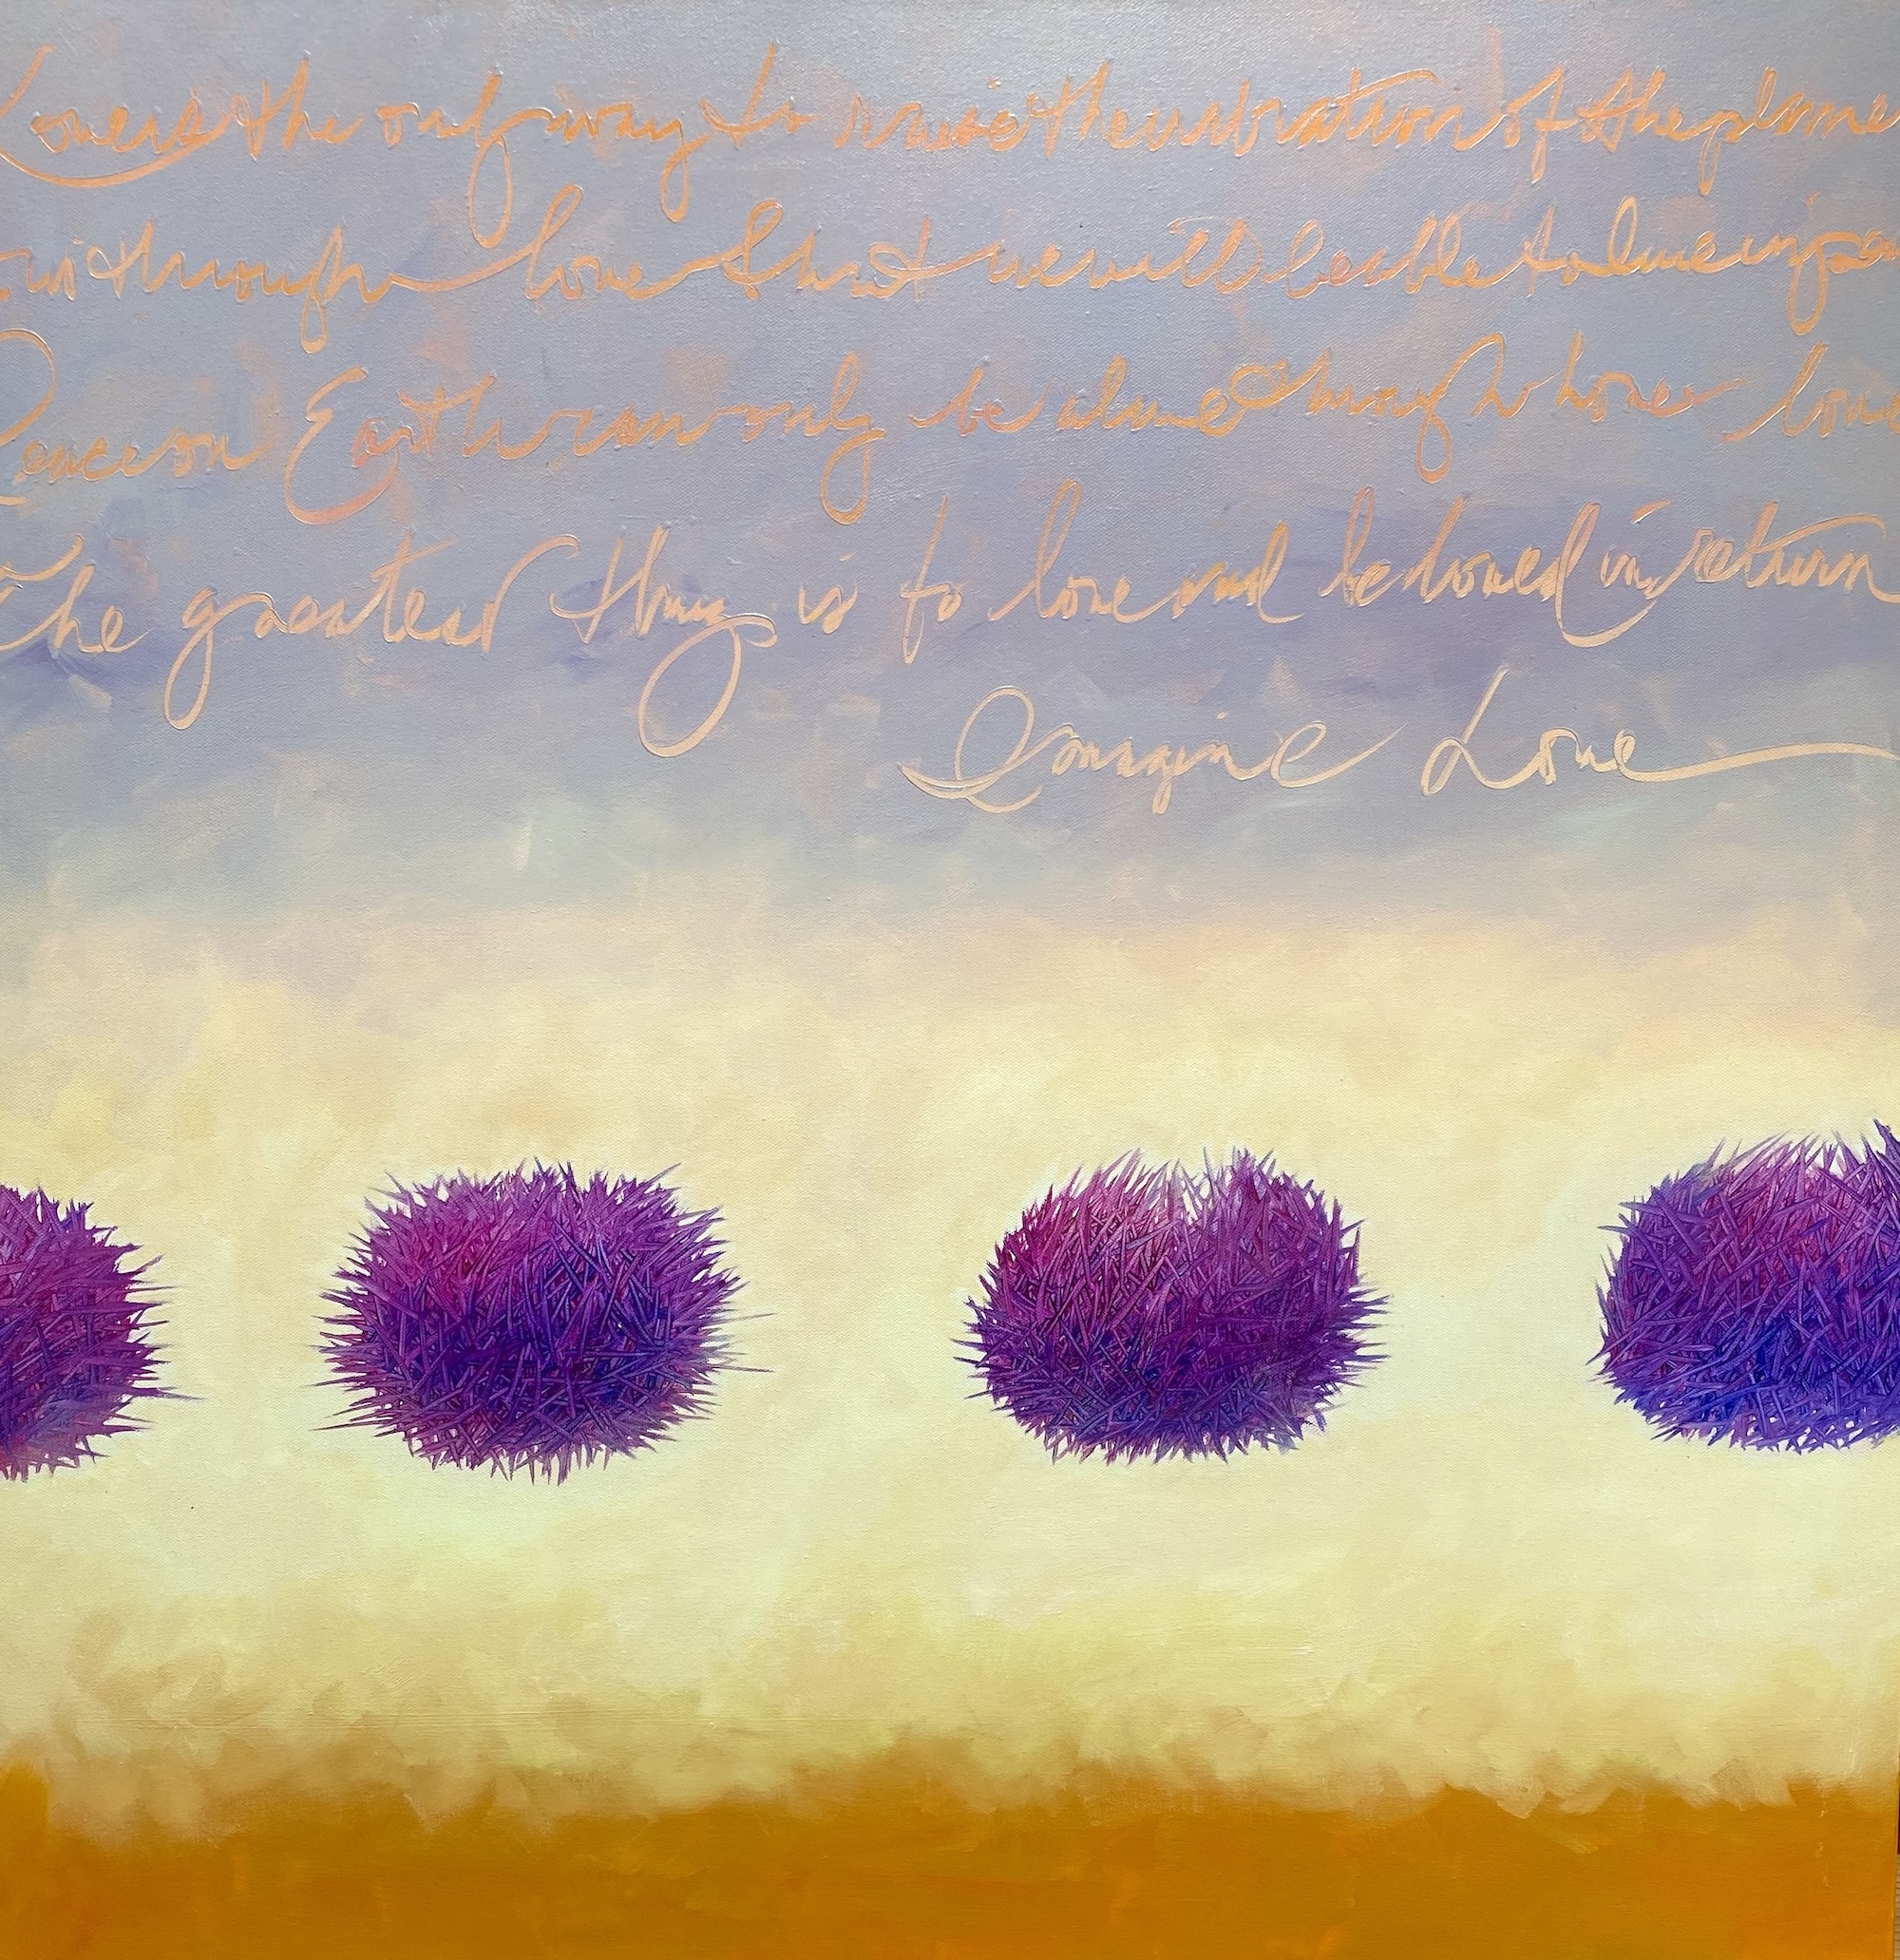 Love is the only way to raise the vibration of the plane
is through love that we will be able to live in pea
Peace on Earth can only be alive through love
The greatest thing is to love and be loved in return
Imagine Love